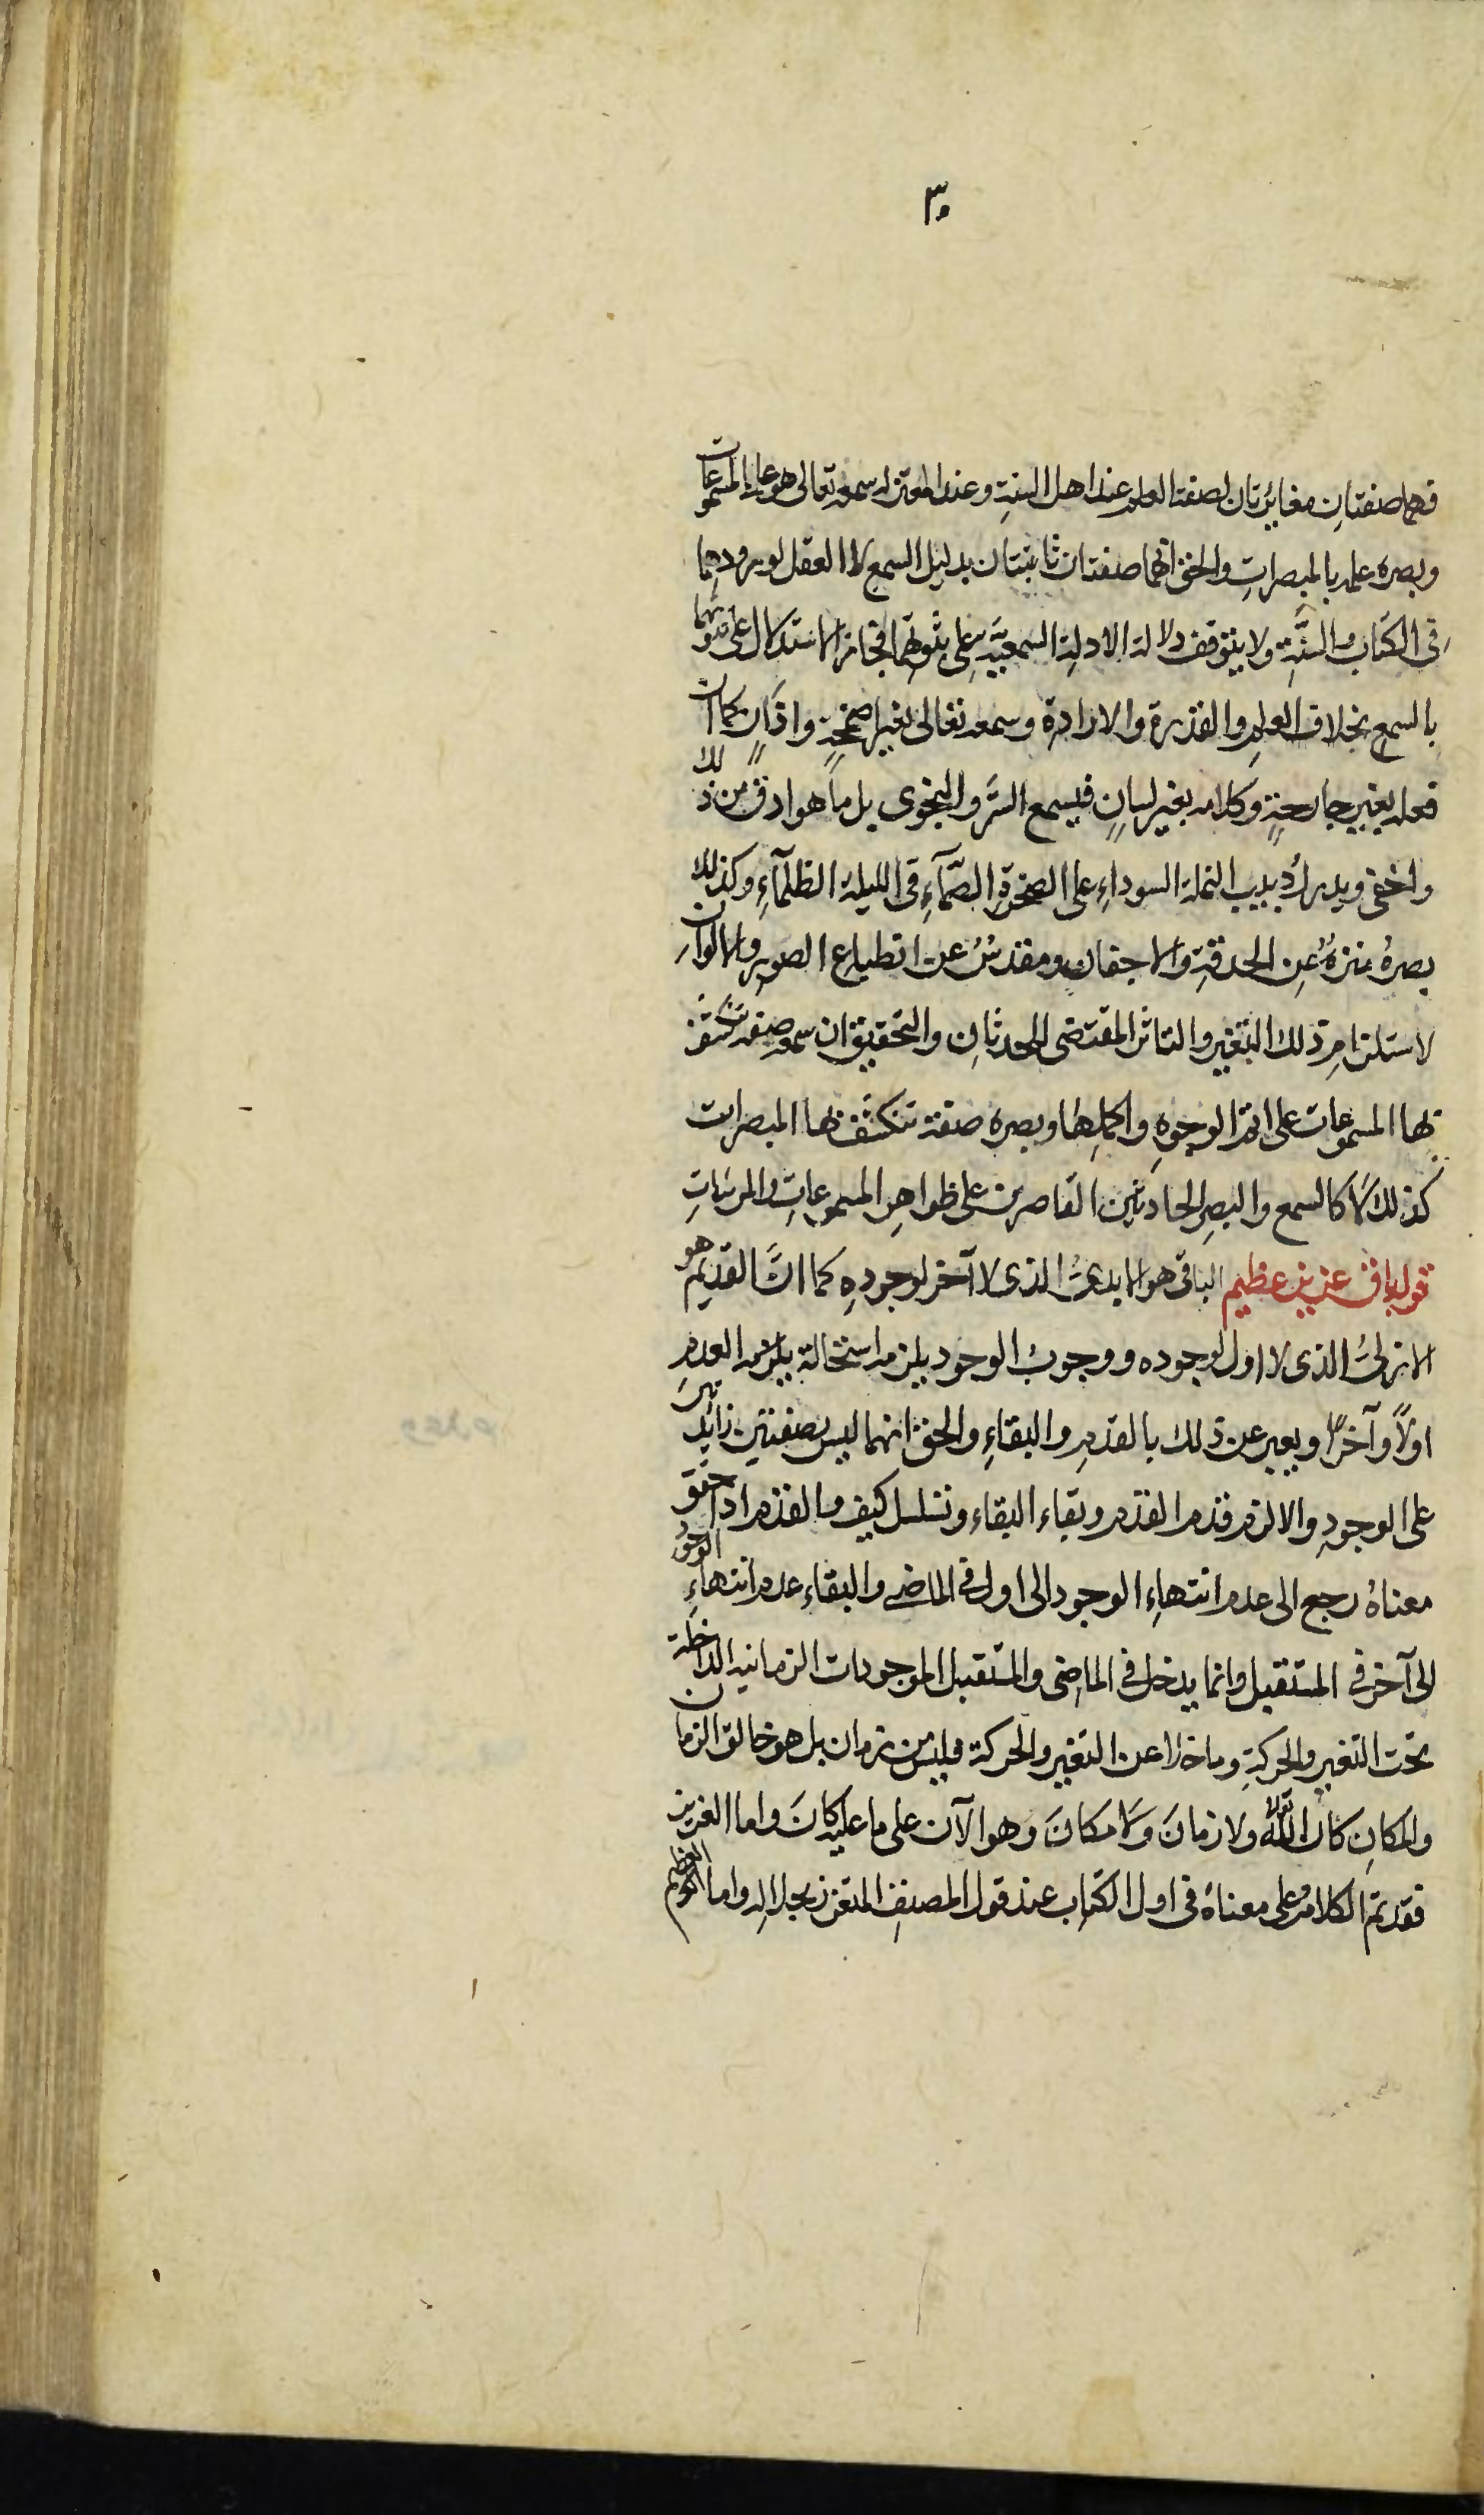 ٣٠
فهما صفتانِ مغايرتان لصفة العلم عند اهل السنةِ وعند المعتزله سمعه تعالى هو علمه بالمسموعات
وبصره علمه بالمبصراتِ والحق انهما صفتان ثابتتان بدليل السمع لا العقل لورودهما
فى الكتاب والسنَّةِ ولا يتوقف دلالة الادلة السمعيَّة على ثبوتهما فجاز الاستدلال على ثبوتهما
بالسمع بخلاف العلمِ والقدرة والارادة وسمعه تعالى بغير اصمخةٍ واذانٍ كما ان
فعله بغير جارحةٍ وكلامه بغير لسانٍ فيسمع السّر والنجوى بل ما هو ادق من ذلك
واخفى ويدرك دبيب النملة السوداءِ على الصخرةِ الصّمآءِ فى الليلة الظلمآءِ وكذلك
بصرهُ منزهٌ عنِ الحدقةِ والاجفان ومقدسٌ عن انطباع الصور والالوان
لاستلزامِ ذلك التغير والتاثر المقتضى للحدثانِ والتحقيق ان سمعه صفة تنكشف
بها المسموعات على اتم الوجوهِ واكملها وبصره صفة تنكشف بها المبصرات
كذلك لا كالسمع والبصرِ الحادثين القاصرين على ظواهرِ المسموعاتِ والمرئياتِ
قوله باق عزيز عظيم الباقى هو الابدىُّ الذى لا آخر لوجودهِ كما انَّ القديم هو
الازلىُّ الذى لا اول لوجوده ووجوبُ الوجود يلزمه استحالة العدم
اولاً وآخراً ويعبر عن ذلك بالقدمِ والبقاءِ والحق انهما ليس بصفتين زائدتين
على الوجودِ والا لزم قدم القدم وبقاء البقاء وتسلسل كيف والقدم اذا حقق
معناهُ رجع الى عدم انتهاءِ الوجود الى اول فى الماضى والبقاء عدم انتهاءِ الوجود
الى آخر فى المستقبل وانما يدخل فى الماضى والمستقبل الموجودات الزمانيه الداخلة
تحت التغيرِ والحركةِ وما خلا عن التغير والحركة فليس من زمان بل هو خالق الزمان
والمكانِ كان اللّٰه تعالى ولا زمانَ ولا مكانَ وهو الآن على ما عليه كانَ واما العزيز
فقد تم الكلام على معناهُ فى اول الكتابِ عند قول المصنفِ المتعزز بجلاله واما العظيم